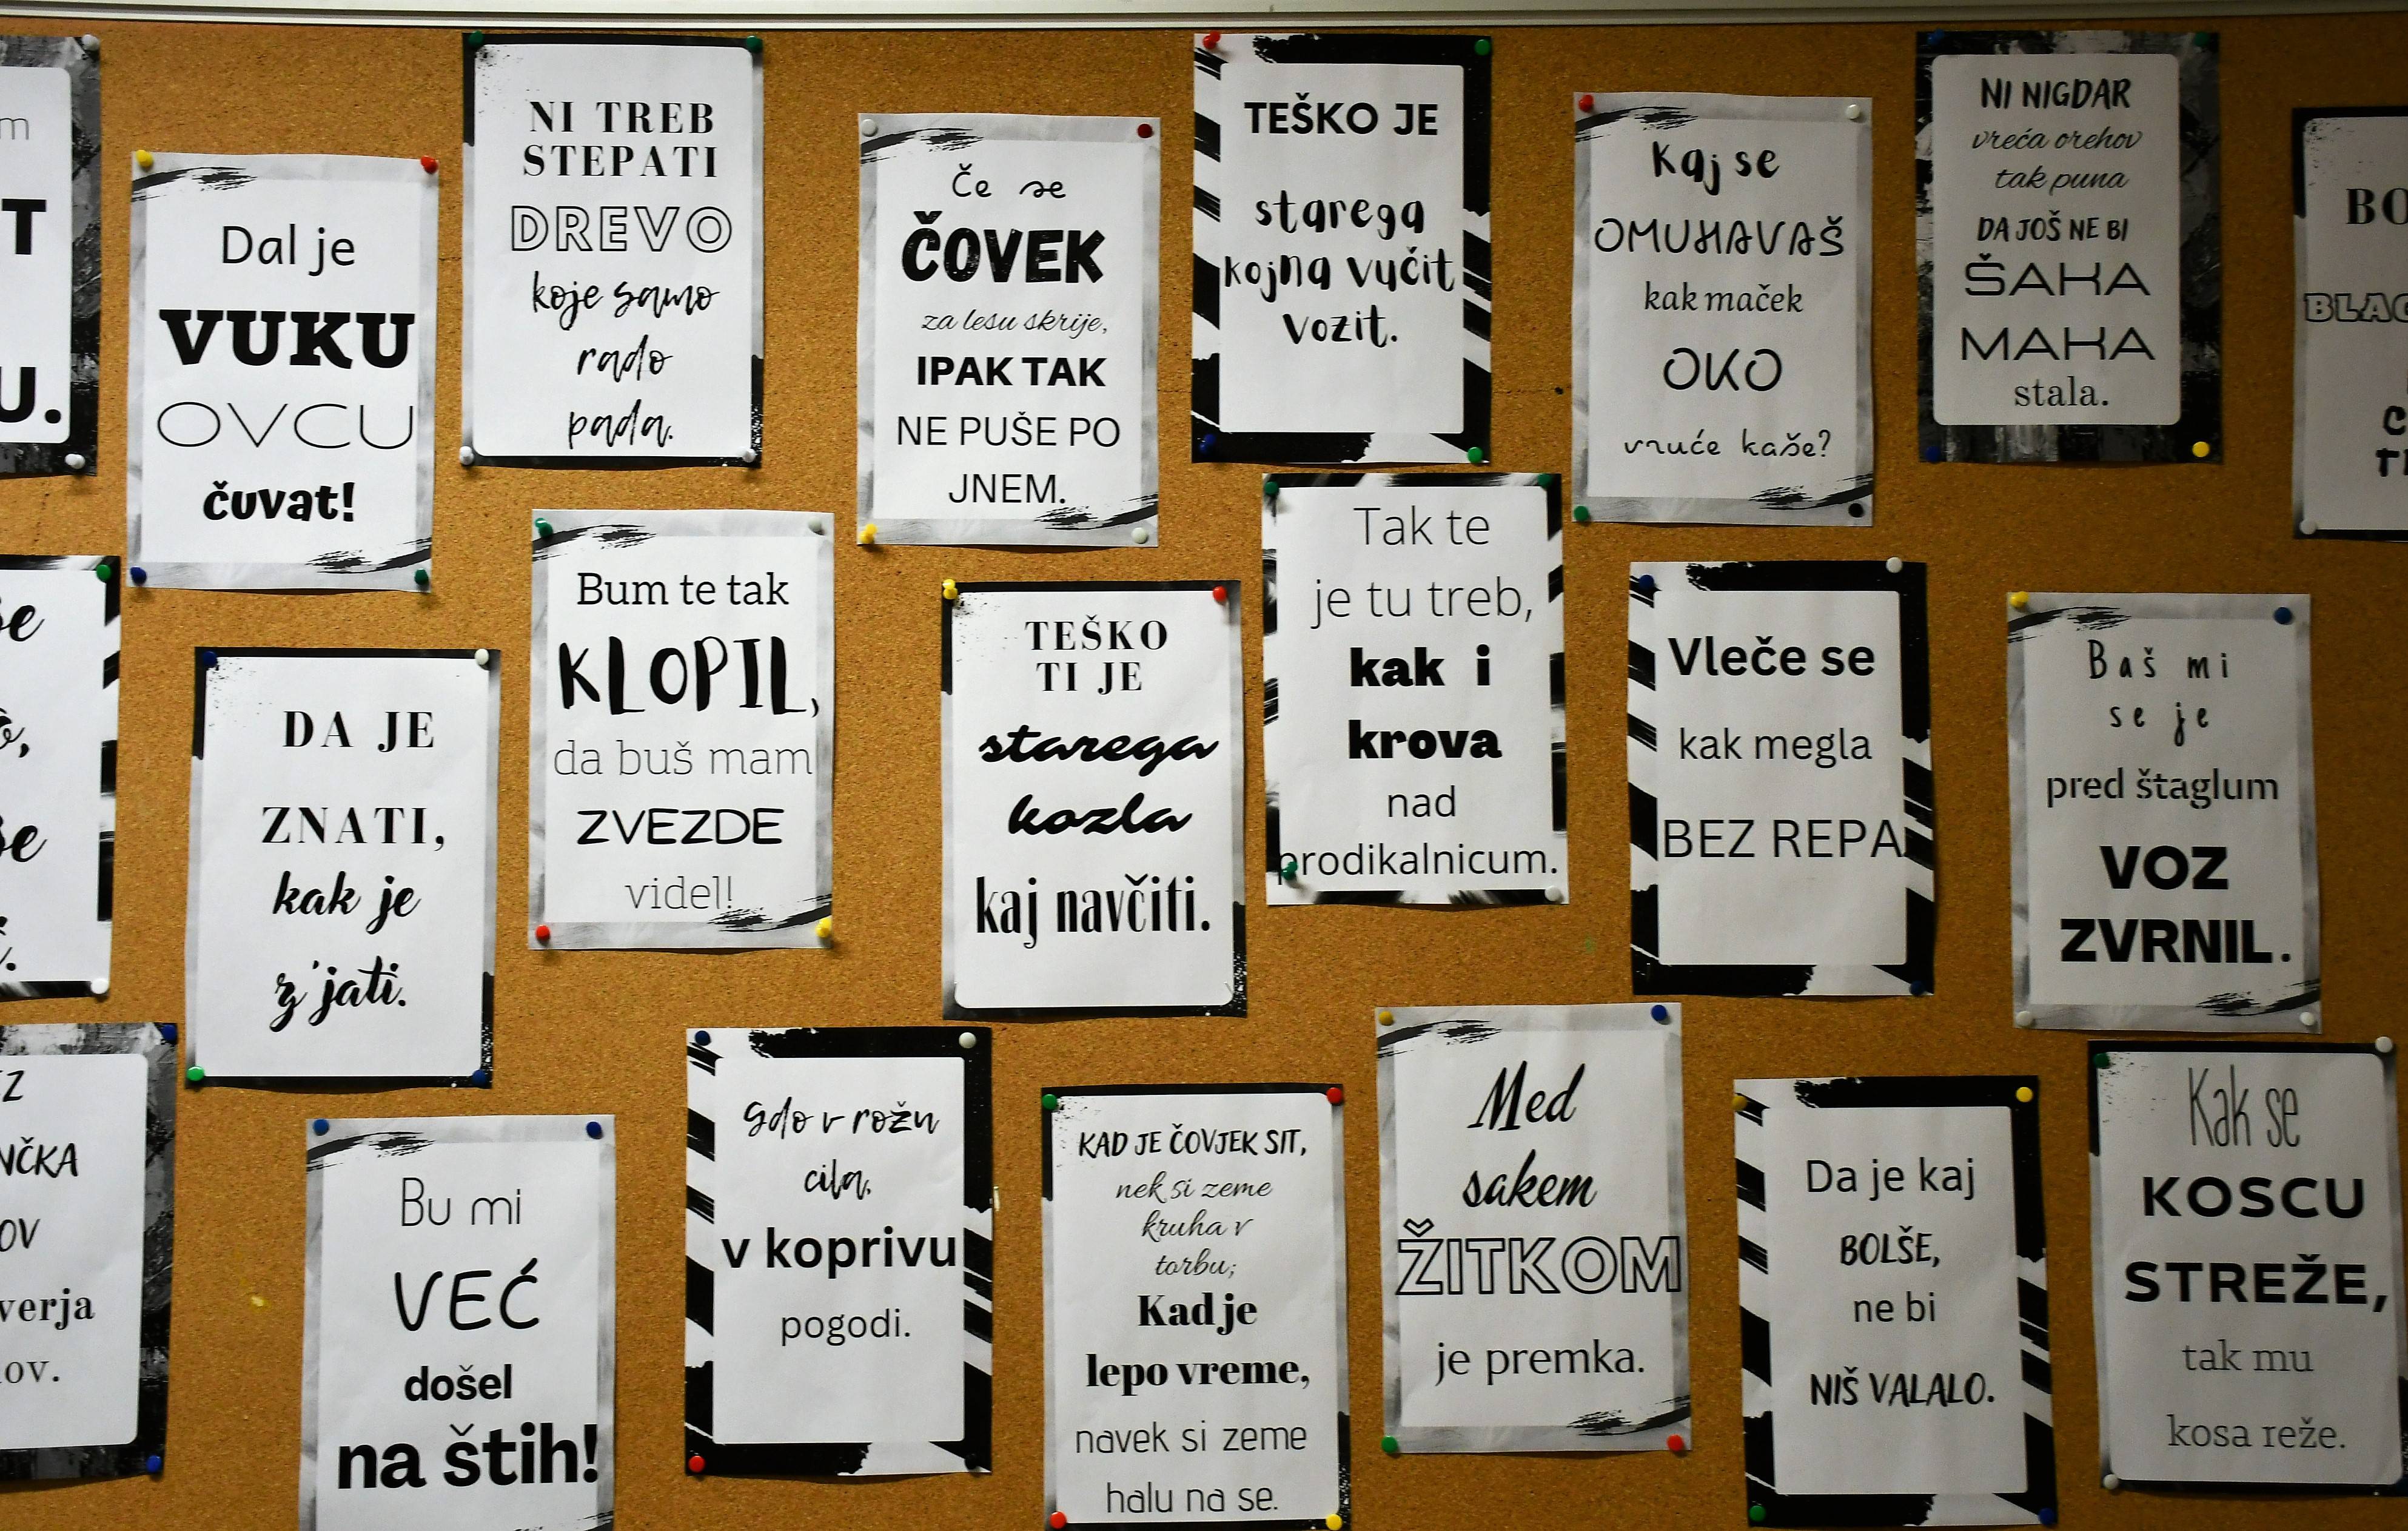 T
U.
Dal je
VUKU
OVCU
čuvat!
NI TREB
STEPATI
DREVO
koje samo
rado
pada.
Če se
ČOVEK
za lesu skrije,
IPAK TAK
NE PUŠE PO
JNEM.
TEŠKO JE
starega
kojna vučit
vozit.
Kaj se
OMUHAVAŠ
kak maček
OKO
vruće kaše?
NI NIGDAR
vreća orehov
tak puna
DA JOŠ NE BI
ŠAKA
MAKA
stala.
BO
BLAG
DA JE
ZNATI,
kak je
z'jati.
Bum te tak
KLOPIL,
da buš mam
ZVEZDE
videl!
TEŠKO
TI JE
starega
kozla
kaj navčiti.
Tak te
je tu treb,
kak i
krova
nad
prodikalnicum.
Vleče se
kak megla
BEZ REPA
Baš mi
se je
pred štaglum
VOZ
ZVRNIL.
NČKA
OV
verja
ov.
Bu mi
VEĆ
došel
na štih!
Gdo v rožu
cila,
v koprivu
pogodi.
KAD JE ČOVJEK SIT,
nek si zeme
kruha v
torbu;
Kad je
lepo vreme,
navek si zeme
halu na se.
Med
sakem
ŽITKOM
je premka.
Da je kaj
BOLŠE,
ne bi
NIŠ VALALO.
Kak se
KOSCU
STREŽE,
tak mu
kosa reže.